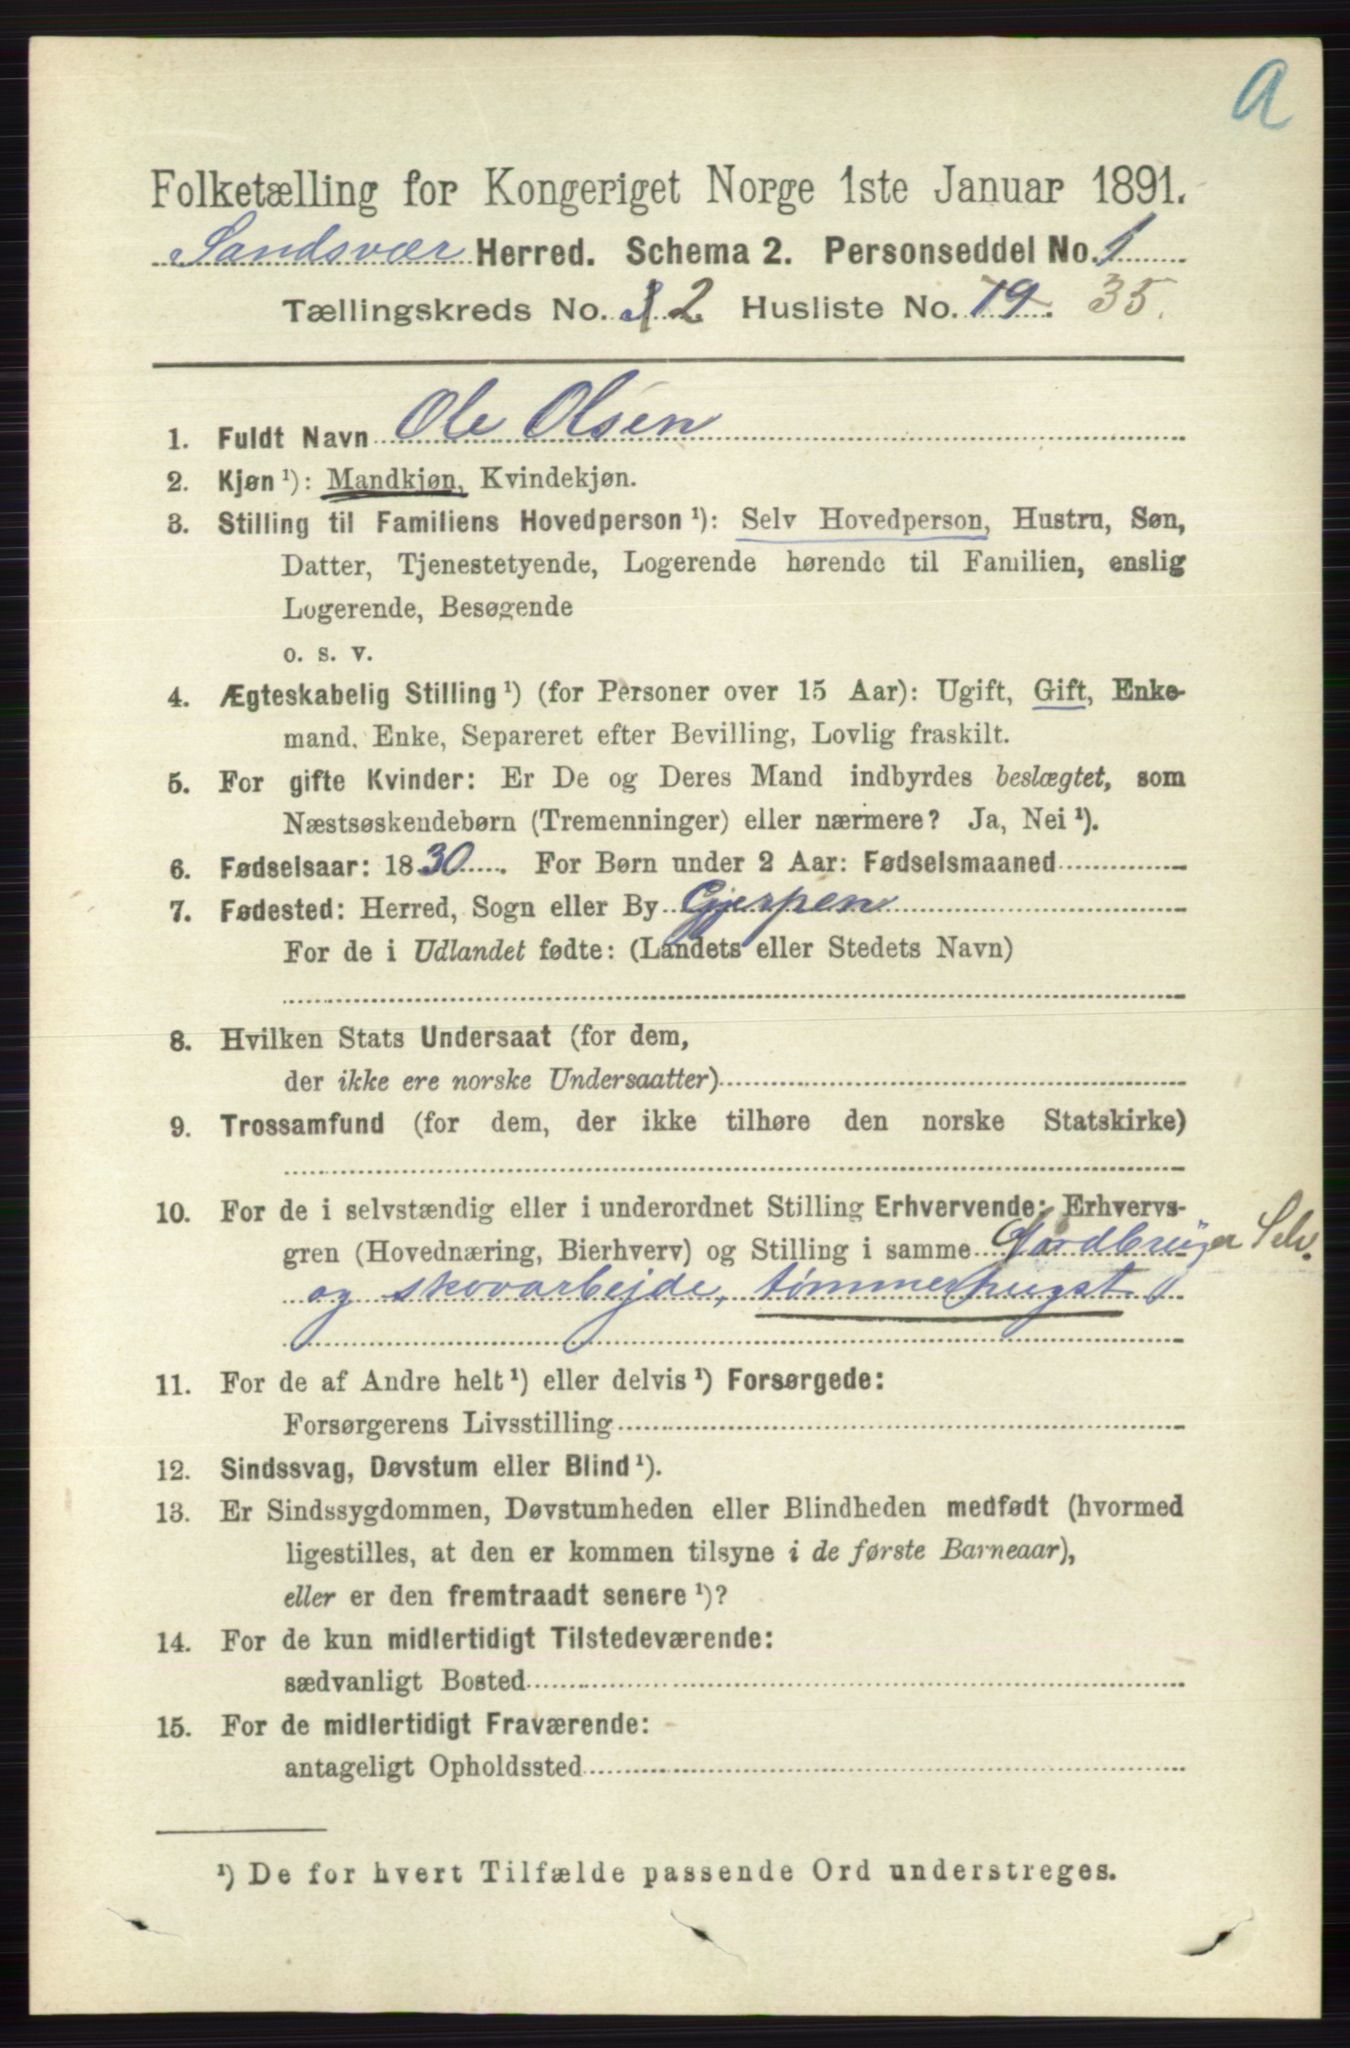 a
Folketælling for Kongeriget Norge 1ste Januar 1891.
Sandsvær Herred. Schema 2. Personseddel No. 1
Tællingskreds No. 2 Husliste No. 19. 35.
1. Fuldt Navn Ole Olsen
2. Kjøn ¹): Mandkjøn, Kvindekjøn.
3. Stilling til Familiens Hovedperson ¹): Selv Hovedperson, Hustru, Søn,
Datter, Tjenestetyende, Logerende hørende til Familien, enslig
Logerende, Besøgende
o. s. v.
4. Ægteskabelig Stilling ¹) (for Personer over 15 Aar): Ugift, Gift, Enke-
mand, Enke, Separeret efter Bevilling, Lovlig fraskilt.
5. For gifte Kvinder: Er De og Deres Mand indbyrdes beslægtet, som
Næstsøskendebørn (Tremenninger) eller nærmere? Ja, Nei ¹).
6. Fødselsaar: 1830. For Børn under 2 Aar: Fødselsmaaned
7. Fødested: Herred, Sogn eller By Gjerpen
For de i Udlandet fødte: (Landets eller Stedets Navn)
8. Hvilken Stats Undersaat (for dem,
der ikke ere norske Undersaatter)
9. Trossamfund (for dem, der ikke tilhøre den norske Statskirke)
10. For de i selvstændig eller i underordnet Stilling Erhvervende: Erhvervs-
gren (Hovednæring, Bierhverv) og Stilling i samme Gardbruger Selv.
og skovarbejde, tømmerhugst.
11. For de af Andre helt ¹) eller delvis ¹) Forsørgede:
Forsørgerens Livsstilling
12. Sindssvag, Døvstum eller Blind ¹).
13. Er Sindssygdommen, Døvstumheden eller Blindheden medfødt (hvormed
ligestilles, at den er kommen tilsyne i de første Barneaar),
eller er den fremtraadt senere ¹)?
14. For de kun midlertidigt Tilstedeværende:
sædvanligt Bosted
15. For de midlertidigt Fraværende:
antageligt Opholdssted
¹) De for hvert Tilfælde passende Ord understreges.